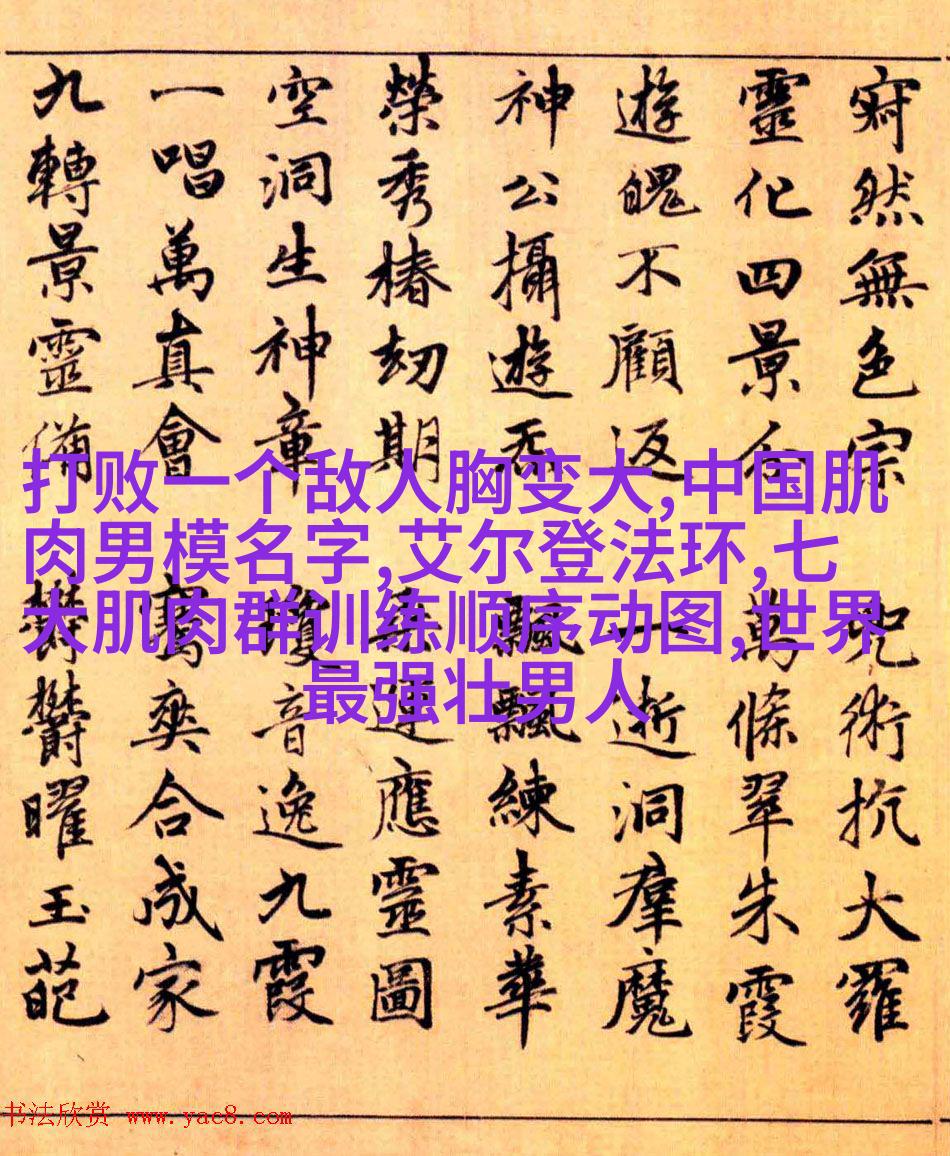 寂然無色宗 兜術抗大羅
靈化四景分 萬條翠朱霞
遊魂不顧返 一逝洞羣魔
神公攝遊炁 飄飄練素華
榮秀椿劫期 運應靈圖
空洞生神章 瓊音逸九霞
一唱萬真會 騫爽合成家
九轉景靈備 鬱鬱曜玉葩
打败一个敌人胸变大,中国肌
肉男模名字,艾尔登法环,七
大肌肉群训练顺序动图,世界
最强壮男人
书法欣赏 www.yac8.com